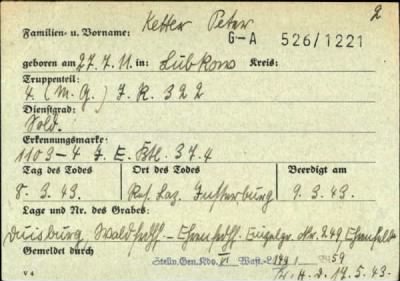 2
Familien- u. Vorname: Ketter Peter
G-A 526/1221
geboren am 27.7.11. in: Lübkow Kreis:
Truppenteil:
4. (M.G.) J.R. 322
Dienstgrad:
Sold.
Erkennungsmarke:
1103 – 4 J. E. Btl. 374
Tag des Todes Ort des Todes Beerdigt am
8.3.43. Res. Laz. Insterburg 9.3.43.
Lage und Nr. des Grabes:
Duisburg, Waldfrdhf. – Ehrenfrdhf. Einzelgr. Nr. 249 Ehrenfeld
Gemeldet durch
Stellv. Gen. Kdo. VI
17.5.43.
V 4